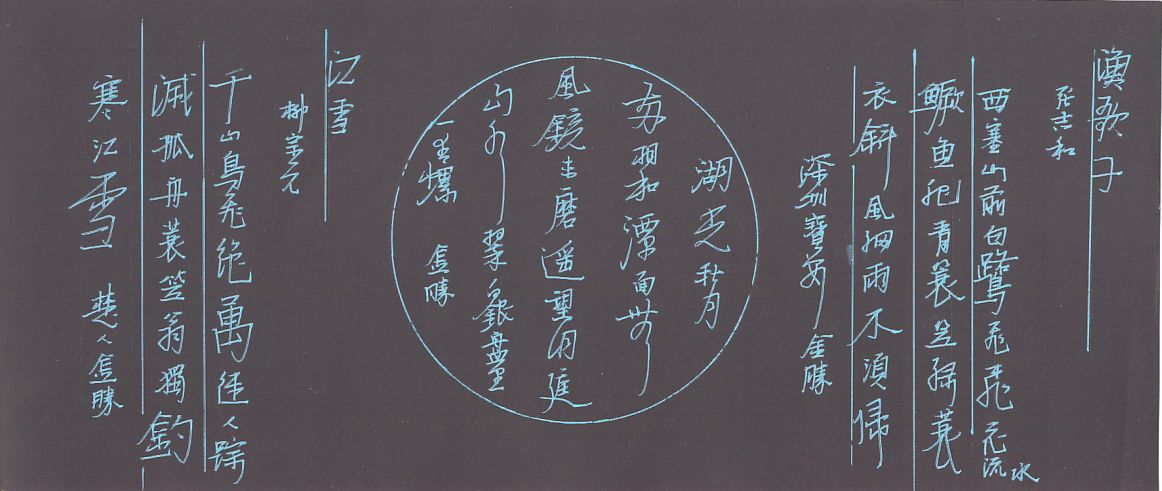 漁歌子
張志和
西塞山前白鷺飛飛花流水
鱖魚肥青蓑笠綠蓑
衣斜風細雨不須歸
深圳寶安 焦勝
湖光秋月
兩相和潭面無
風鏡未磨遥望洞庭
山水翠白銀盤里
一青螺 焦勝
江雪
柳宗元
千山鳥飛絕萬徑人踪
滅孤舟蓑笠翁獨釣
寒江雪 楚人焦勝